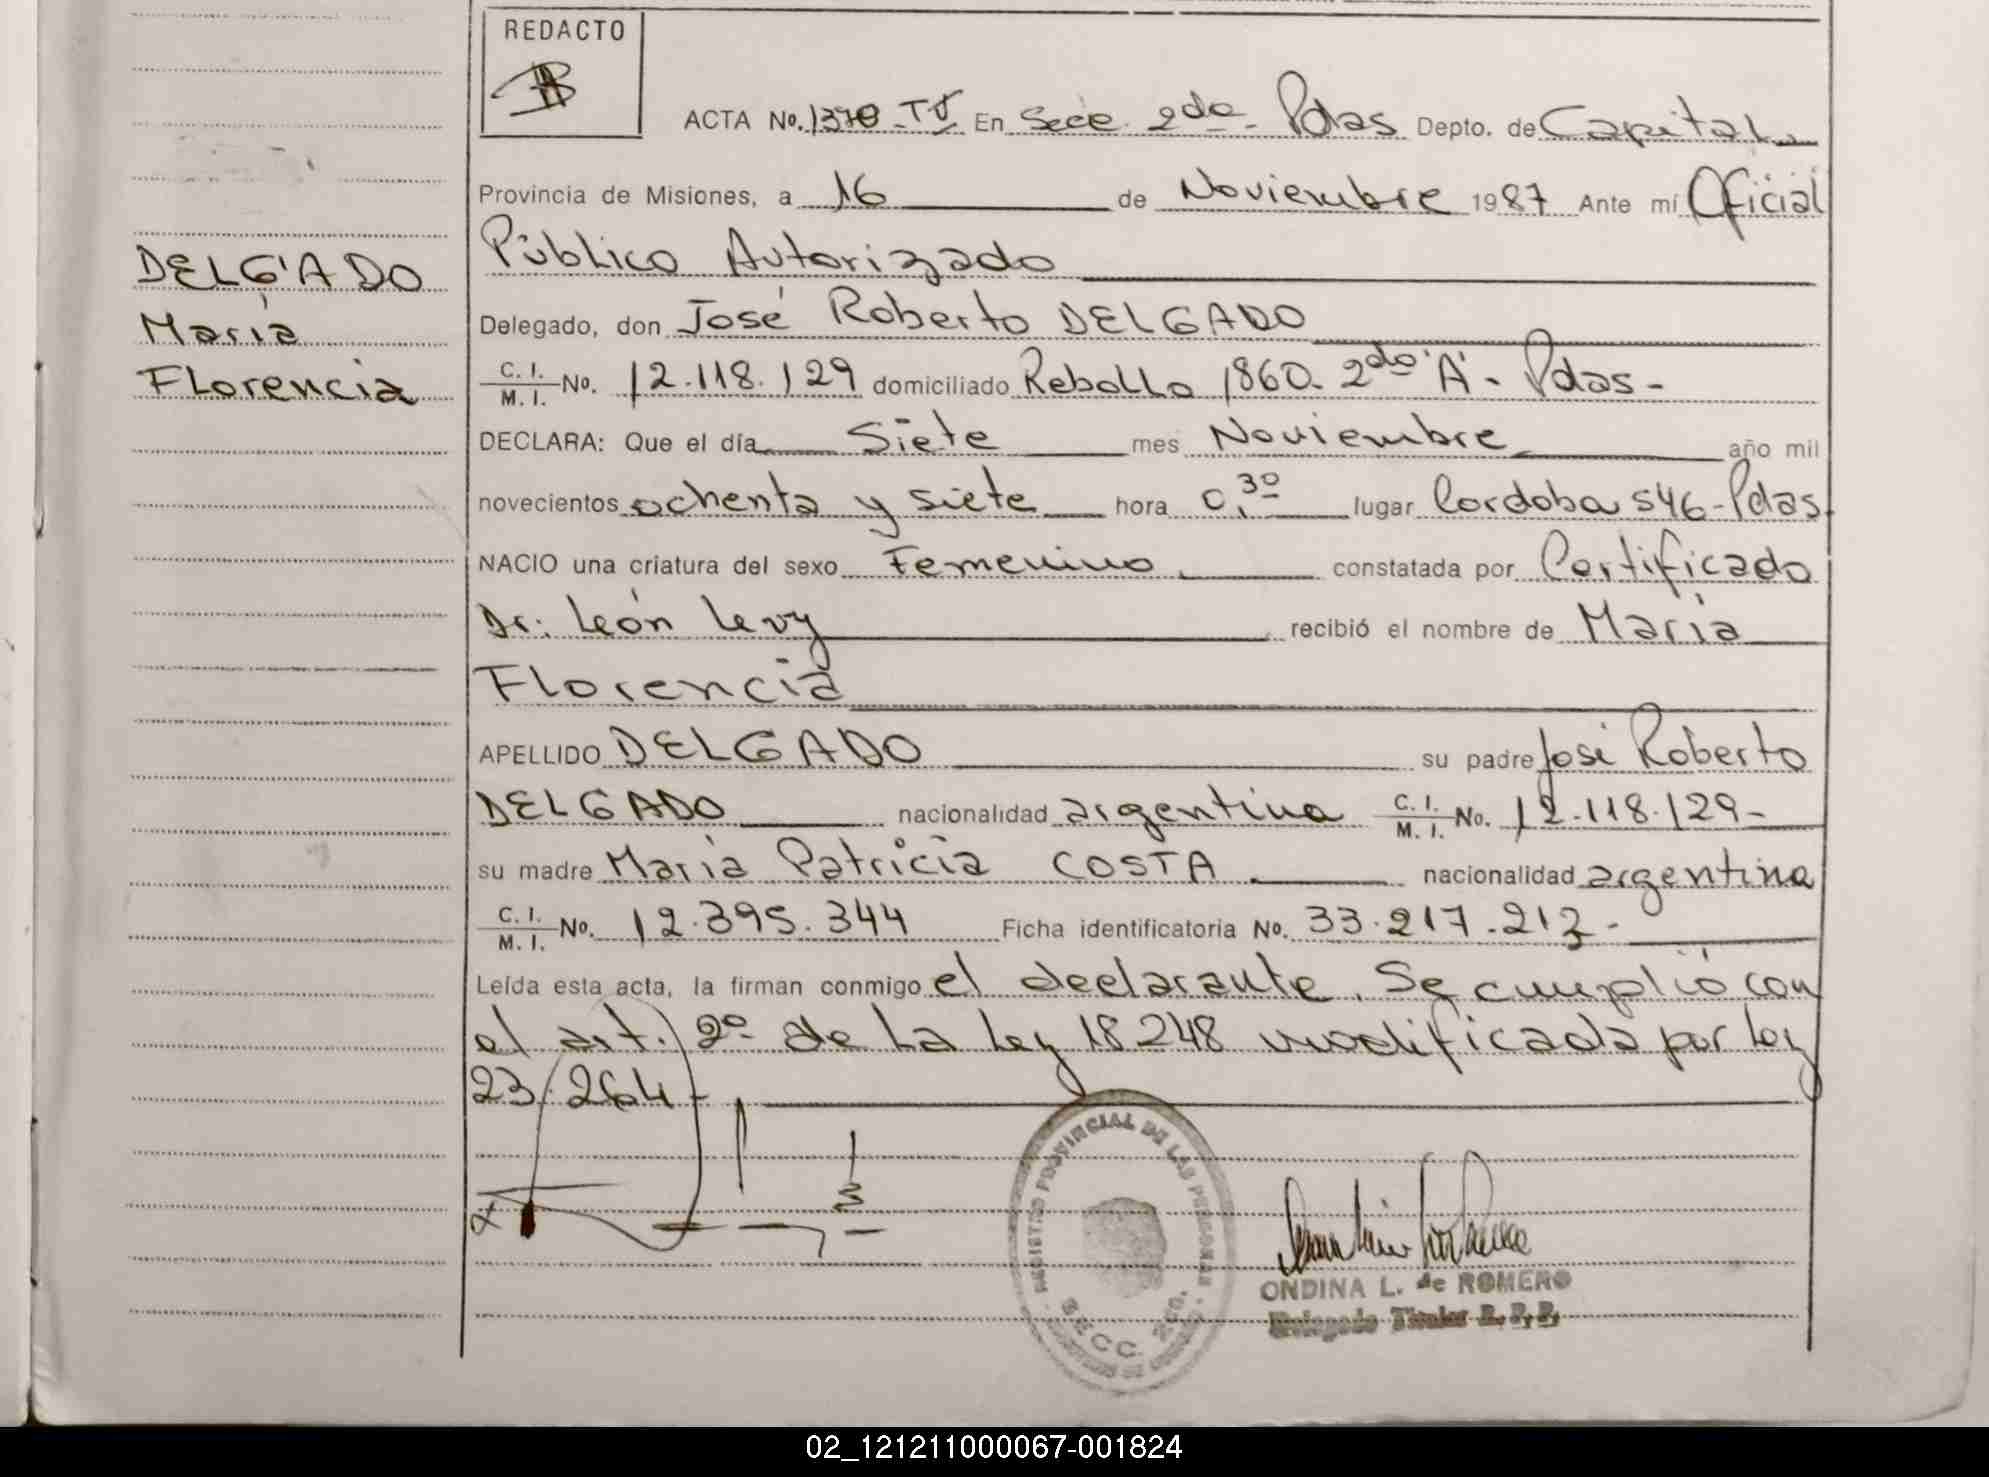 REDACTO
ACTA No. 1370 - Tº En Secc. 2da - Pdas Depto. de Capital
Provincia de Misiones, a 16 de Noviembre 1987 Ante mí Oficial
Público Autorizado
DELGADO
María
Florencia
Delegado, don José Roberto DELGADO
C. I. / M. I. No. 12.118.129 domiciliado Rebollo 1860 - 2do "A" - Pdas -
DECLARA: Que el día Siete mes Noviembre año mil
novecientos ochenta y siete hora 0,30 lugar Cordoba 546 - Pdas
NACIO una criatura del sexo Femenino constatada por Certificado
Dr. León Levy recibió el nombre de María
Florencia
APELLIDO DELGADO su padre José Roberto
DELGADO nacionalidad argentina C. I. / M. I. No. 12.118.129 -
su madre María Patricia COSTA nacionalidad argentina
C. I. / M. I. No. 12.395.344 Ficha identificatoria No. 33.217.212 -
Leída esta acta, la firman conmigo el declarante. Se cumplió con
el art. 2º de La Ley 18248 modificada por Ley
23.264 -
REGISTRO PROVINCIAL DE LAS PERSONAS
SECC. 2da.
ONDINA L. de ROMERO
Delegado Titular R. P. P.
02_121211000067-001824